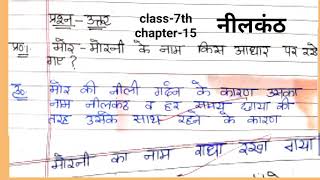 प्रश्न-उत्तर
class-7th
chapter-15
नीलकंठ
प्र०1. मोर-मोरनी के नाम किस आधार पर रखे
गए ?
उ०- मोर की नीली गर्दन के कारण उसका
नाम नीलकंठ व हर समय छाया की
तरह उसके साथ रहने के कारण
मोरनी का नाम राधा रखा गया।